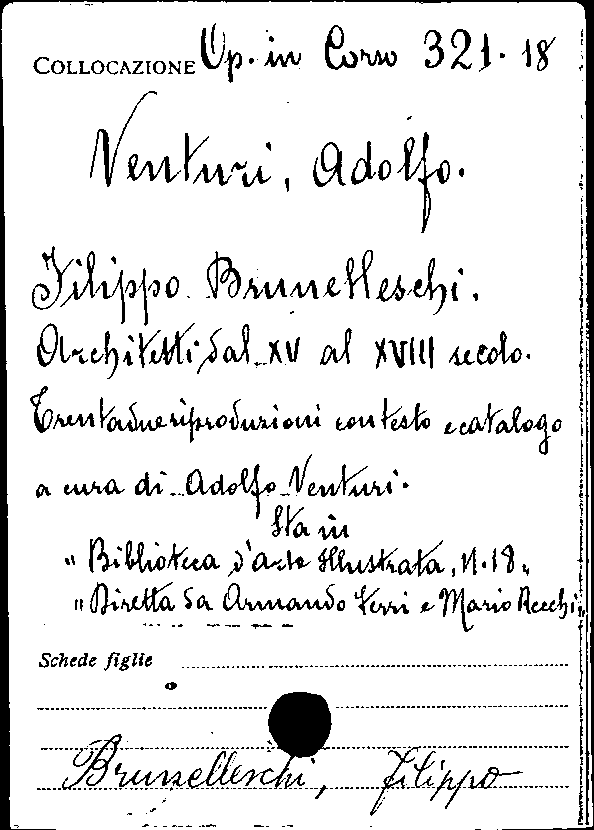 COLLOCAZIONE Op. in Corso 321. 18
Venturi, Adolfo.
Filippo Brunelleschi.
Architetti dal XV al XVIII secolo.
Trentadue riproduzioni con testo e catalogo
a cura di Adolfo Venturi.
Sta in
"Biblioteca d'arte Illustrata, N. 18"
"Diretta da Armando Ferri e Mario Recchi"
Schede figlie
Brunelleschi, Filippo